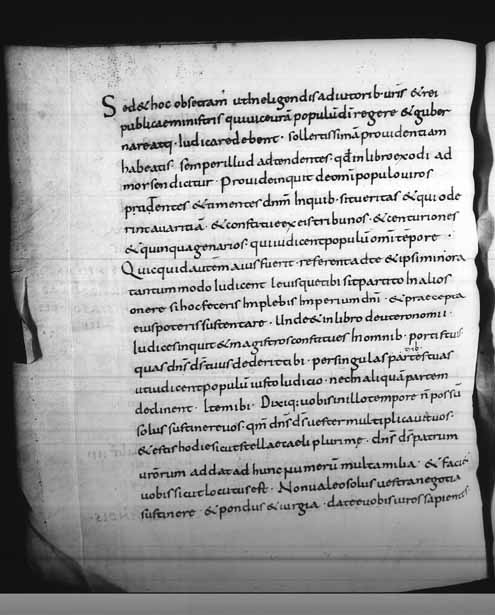 Sed & hoc obsecram ut In eligendis adiutorib· uris & rei
publicae ministris qui vice ura populu di regere & guber
nare atq· Iudicare debent· sollertissima providentiam
habeatis· semper illud adtendentes· qd in libro exodi ad
morsen dicitur· Provide inquit de omi populo viros
prudentes & timentes dnm In quib· sit veritas & qui ode
rint avaritia· & constitue ex eis tribunos· & centuriones
& quinquagenarios· qui iudicent populu omi tepore·
Quicquid autem maius fuerit· referent ad te & ipsi minora
tantummodo Iudicent levius que tibi sit partito In alios
onere· si hoc feceris Implebis Imperium dni· & praecepta
eius poteris sustentare· Unde & in libro deuteronomii·
Iudices inquit & magistros constitues In omnib· portis tuis
quas dns ds tuus dederit tibi· per singulas tribus tuas
ut iudicent populu iusto Iudicio· nec In aliqua partem
declinent· Item ibi· Dixiq; vobis in illo tempore n possu
solus sustinere vos· qm dns ds vester multiplicavit vos·
& estis hodie sicut stellae caeli plurime· dns ds patrum
urorum addat ad hunc numeru multa milia· & faciet
vobis sicut locutus est· Non valeo solus vestra negotia
sustinere· & pondus & iurgia· date e vobis viros sapientes